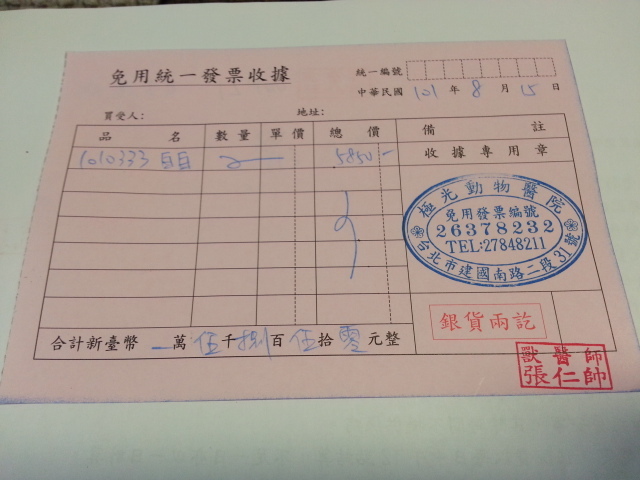 免用統一發票收據
統一編號
中華民國 101 年 8 月 15 日
買受人: 地址:
品名 數量 單價 總價 備註
收據專用章
1010333 2 5850-
極光動物醫院
免用發票編號
26378232
TEL:27848211
台北市建國南路二段31號
銀貨兩訖
合計新臺幣 一萬 伍千 捌百 伍拾 零元整
獸醫師
張仁帥